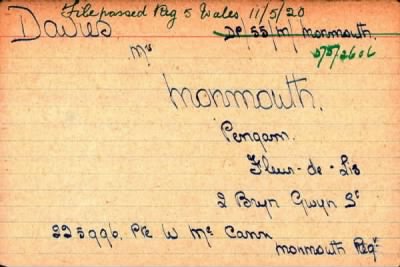 File passed Reg 5 Wales 11/5/20
Davies DP/55/M/Monmouth.
5/5/2606
Mrs
Monmouth.
Pengam.
Fleur-de-Lis
2 Bryn Gwyn St
225996. Pte W Mc Cann
Monmouth Regt